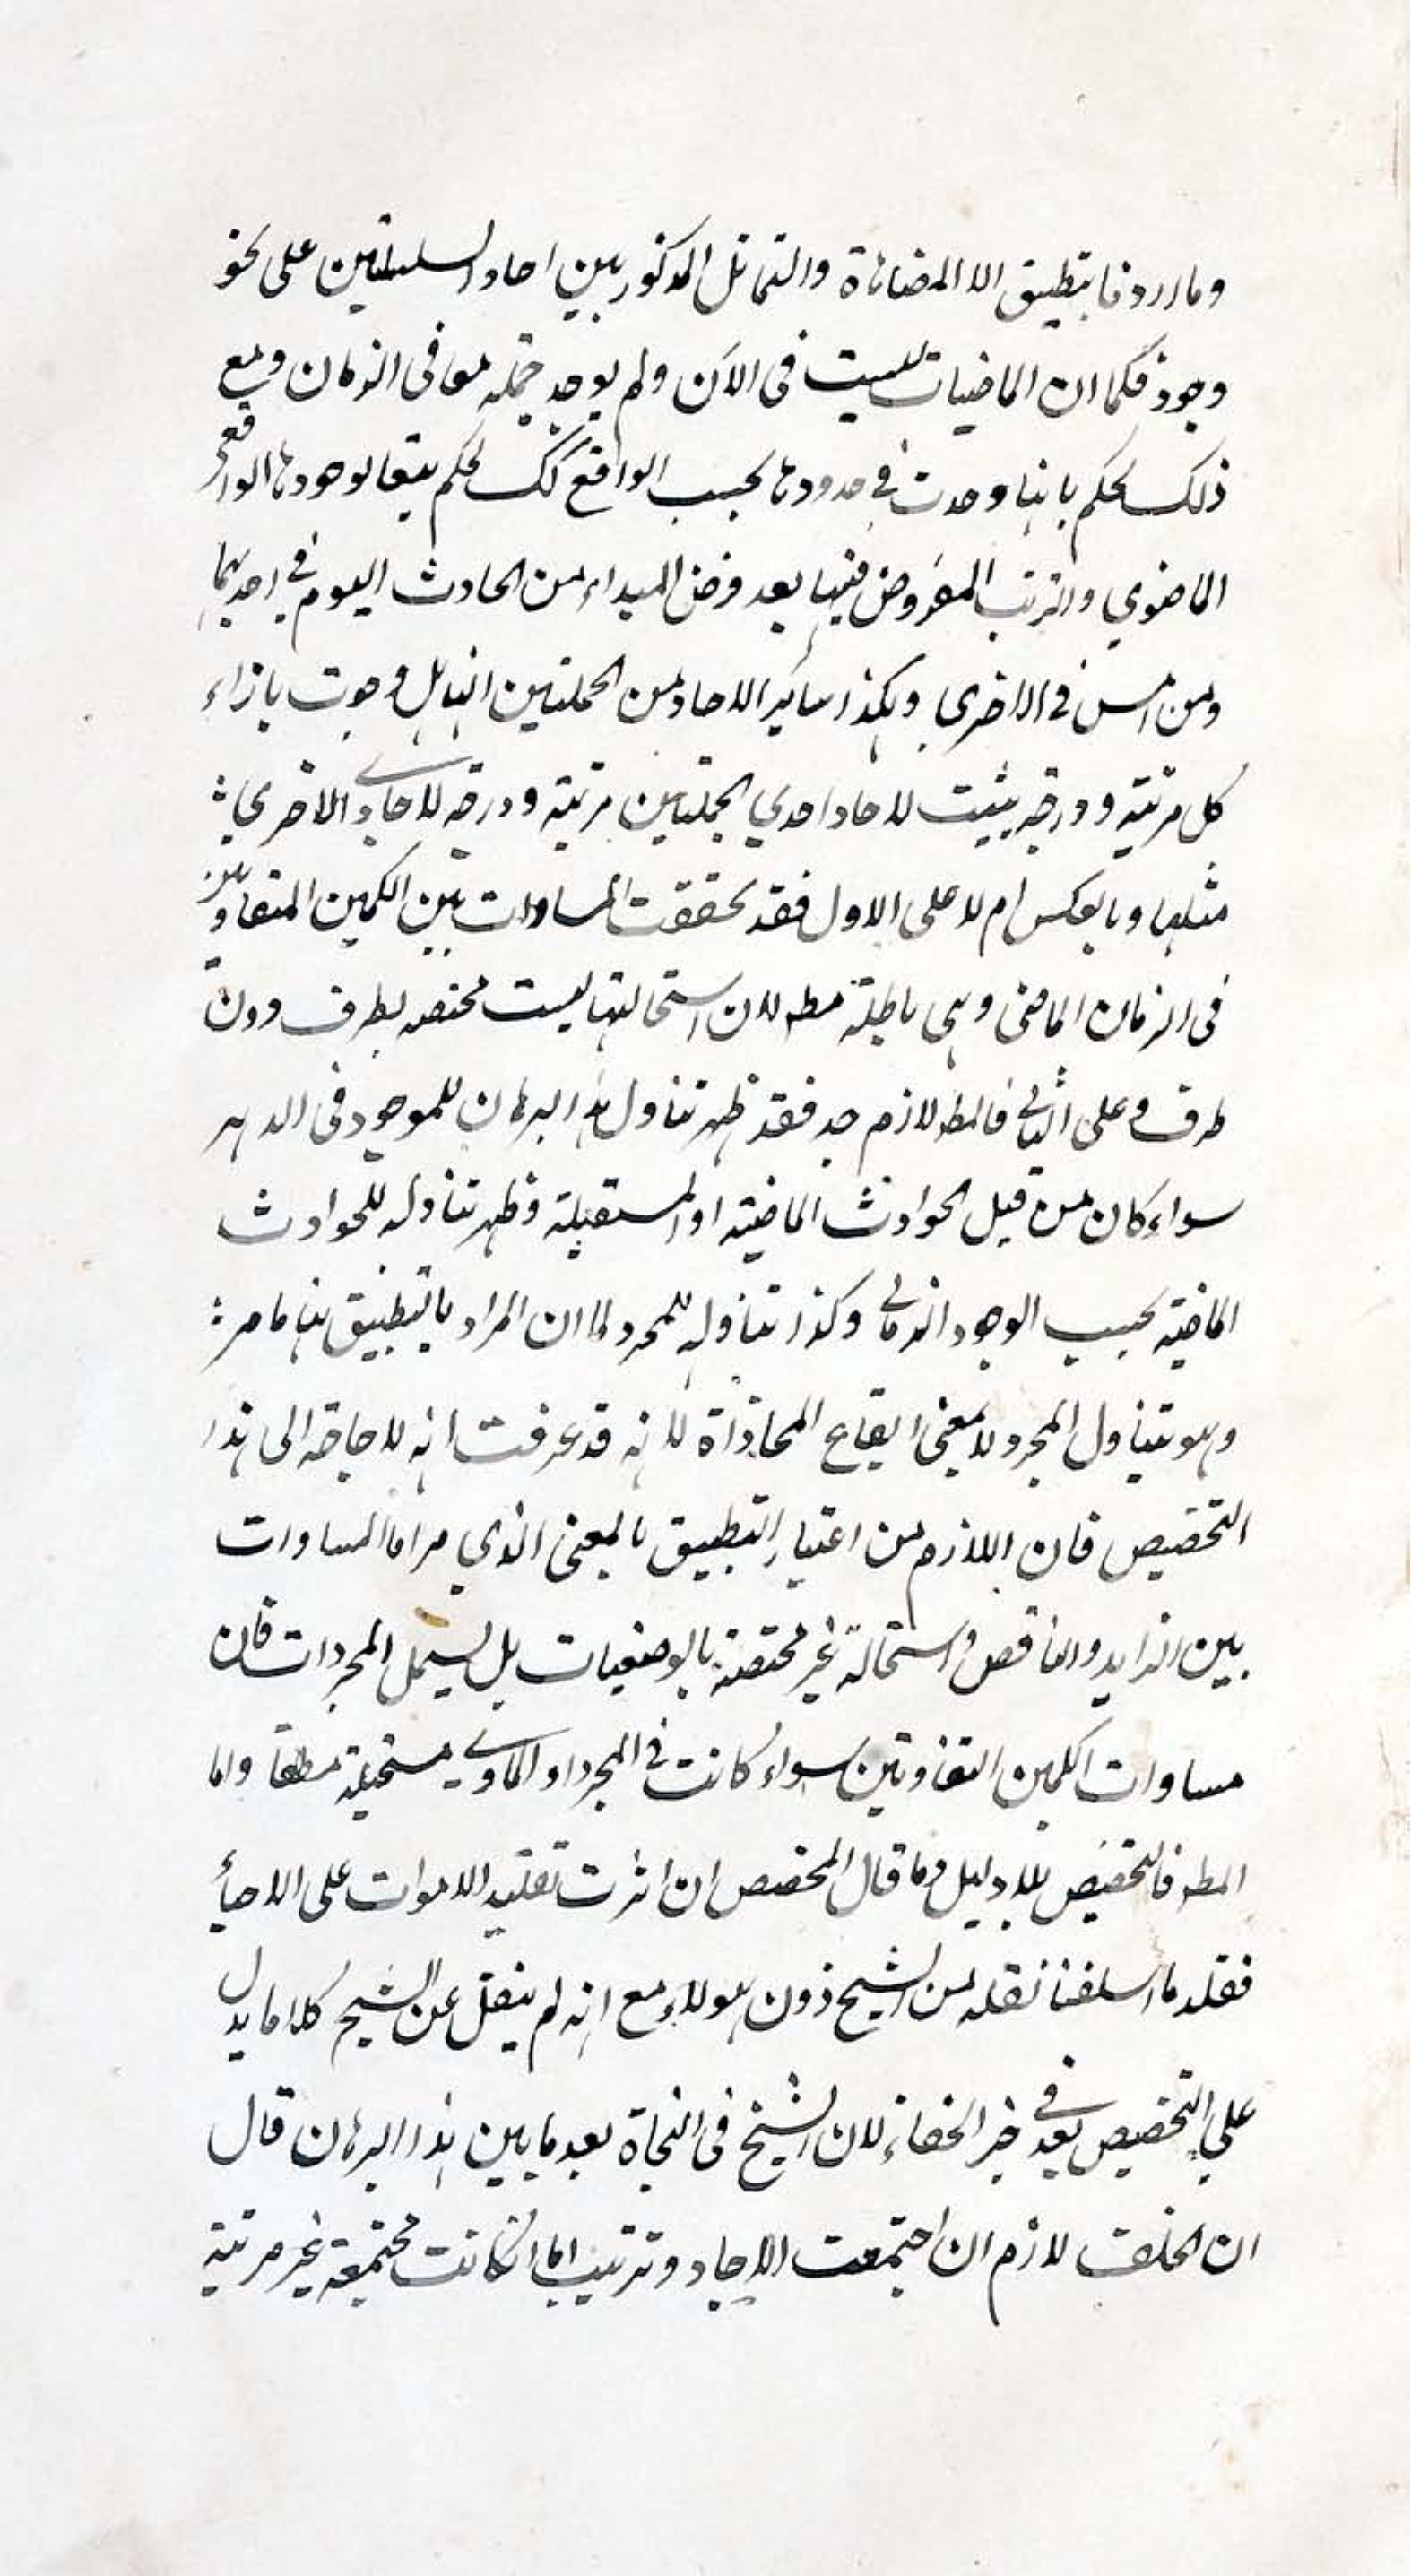 وما اردنا بتطبيق الا المضاهاة والتماثل المذكور بين احاد السلسلتين على نحو
وجود فكما ان الماضيات ليست فى الآن ولم يوجد جملة معا فى الزمان ومع
ذلك يحكم بانها وجدت في حدودها بحسب الواقع كك يحكم بتعا لوجودها الواقعى
الماضوي والترتب المفروض فيها بعد فرض المبداء من الحادث اليوم في احديهما
ومن امس في الاخرى وهكذا سائر الاحاد من الجملتين انها هل وجدت بازاء
كل مرتبه ودرجه يثبت لاحاد احدي الجملتين مرتبة ودرجه لاحاد الاخرى
مثلها وبالعكس ام لا على الاول فقد تحققت المساوات بين الكمين المتفاوتين
فى الزمان الماضى وهى باطلة مطه لان استحالتها ليست مختصه بطرف ودون
طرف وعلى الثاني فالمط لازم جد فقد ظهر تناول هذا البرهان للموجود فى الدهر
سواء كان من قبل الحوادث الماضيه او المستقبلة وظهر تناوله للحوادث
الماضية بحسب الوجود الزماني وكذا تناوله للمجرد لما ان المراد بالتطبيق هنا ما مر
وهو يتناول المجرد لا بمعنى ايقاع المحاذاة لانه قد عرفت انه لا حاجة الى هذا
التخصيص فان اللازم من اعتبار التطبيق بالمعنى الذي مر اما المساوات
بين الزايد والناقص واستحالته غير مختصة بالوضعيات بل يشمل المجردات فان
مساوات الكمين المتفاوتين سواء كانت في المجرد او المادي مستحيلة مطلقا واما
المط فالتخصيص بلا دليل وما قال المخصص ان اثرت تقليد الاموات على الاحياء
فقلد ما اسلفنا نقله من الشيخ دون هولاء مع انه لم ينقل عن الشيخ كلاما يدل
على التخصيص بعد في خبر الخفاء لان الشيخ فى النجاة بعد ما بين هذا البرهان قال
ان الخلف لازم ان اجتمعت الاحاد وترتبت اما ان كانت مجتمعة غير مرتبة